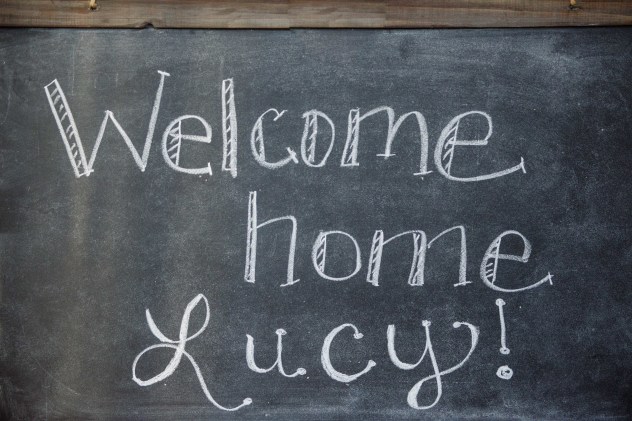 Welcome
home
Lucy!